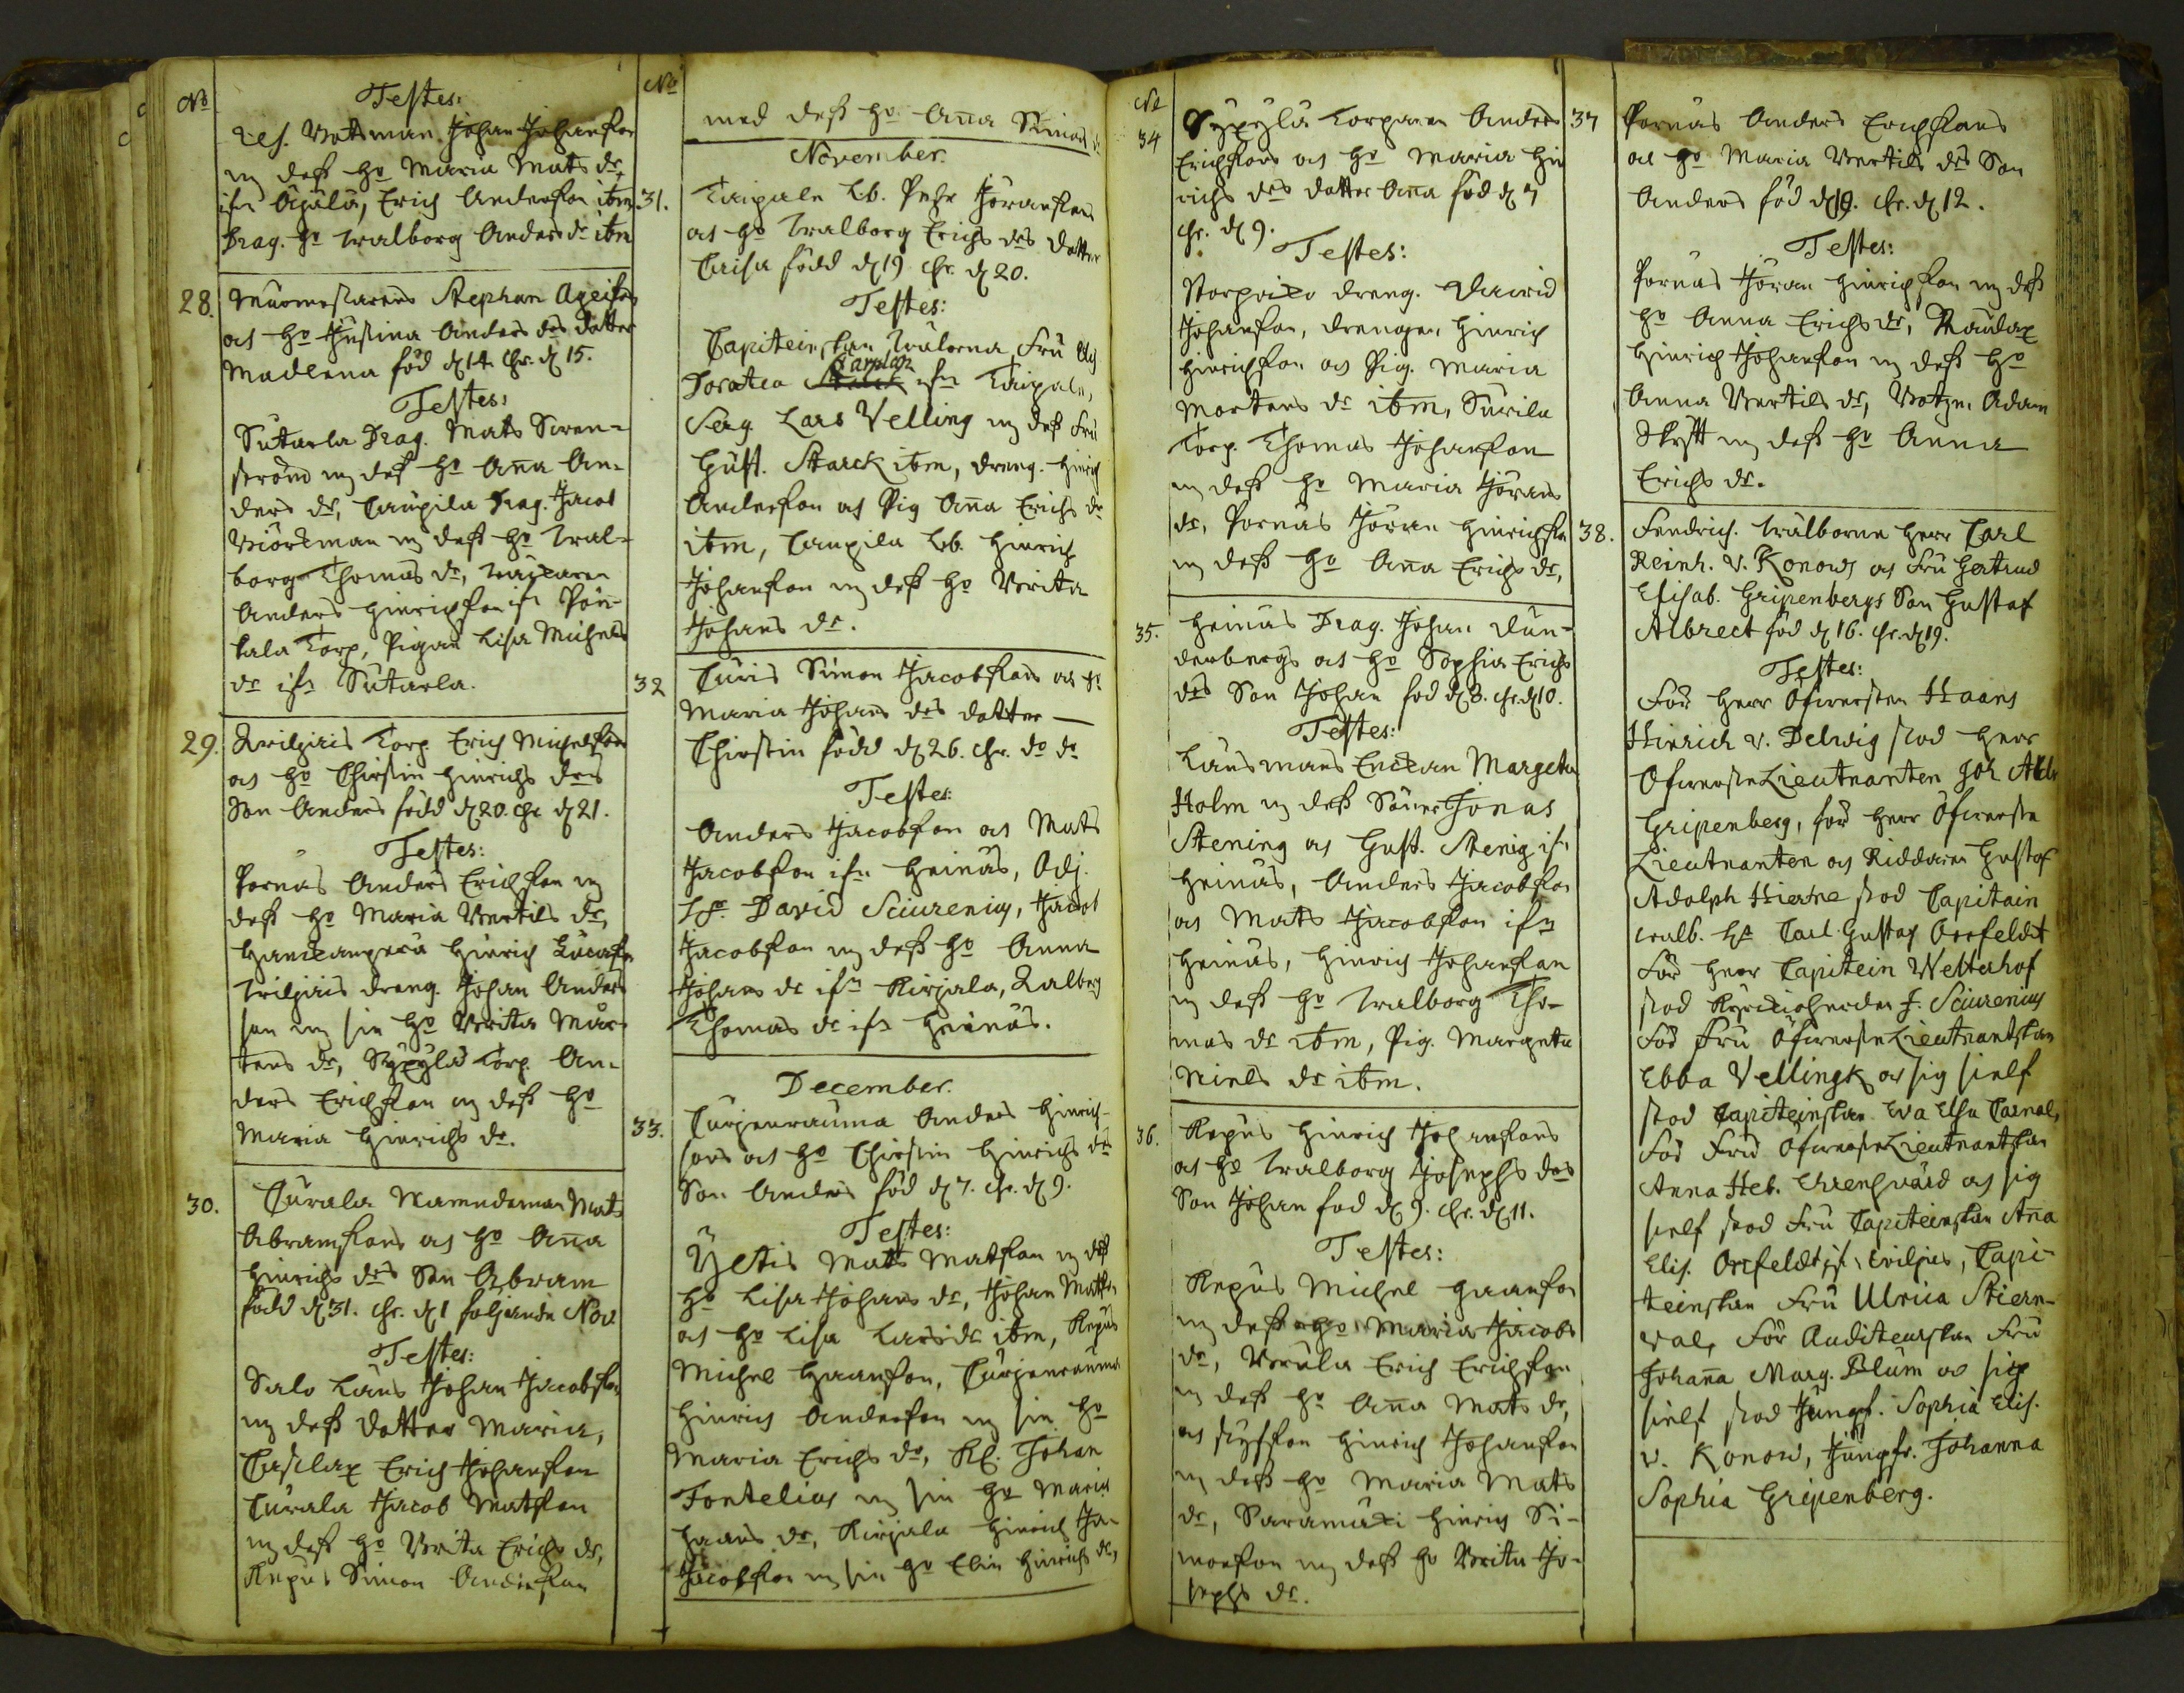 No
Testes:
Res. Botsman Johan Johansson
m dess ho Maria Mats dr,
ifr. Äijälä, Erich Andersson ibm.
Drag. ho Walborg Anders dr ibm
28. Murmestarens Stephan
och ho Justina Anders drs dotter
Madlena föd d 14 Chr. d 15.
Testes:
Sutarla Drag. Mats Swen-
ström m dess ho Anna An-
ders dr, Caupila Drag. Jacob
Biörkman m dess ho Wal-
borg Thomas dr,
Anders Hinrichson ifr Pön-
tala Torp, Pigan Lisa Michels
dr ifr Sutarla.
29. Torp. Erich Michelsons
och ho Chirstin Hinrichs drs
Son Anders född d 20. Chr d 21.
Testes:
Pornäs Anders Erichson m
dess ho Maria Bertils dr,
Hinrich
Wiljais dreng. Johan Anders
son m sin ho Brita Mår-
tens dr, Sypylä Torp. An-
ders Erichson m dess ho
Maria Hinrichs dr.
30. Curala Nämndeman Mats
Abramssons och ho Anna
Hinrichs drs Son Abram
född d 31. Chr. d 1 följande Nov.
Testes:
Salo Läns Johan Jacobsson
m dess dotter Maria,
Caslax Erich Johansson
Curala Jacob Matsson
m dess ho Brita Erichs dr,
Repus Simon Andersson
No
med dess ho Anna Simons dr
November.
31. Taipale Lb. Pehr Jöranssons
och ho Walborg Erichs drs dotter
Caisa född d 19 Chr. d 20.
Testes:
Capiteinskan Wälborna Fru
Doratea Carnlan ifr Taipale,
Serg Lars Velling m dess Fru
Gust. Starck ibm, dreng. Hinrich
Andersson och Pig Anna Erichs dr
ibm, Caupila Lb. Hinrich
Johansson m dess ho Brita
Johans dr.
32 Curis Simon Jacobssons och ho
Maria Johans drs dotter
Chirstin född d 26. Chr. do do
Testes:
Anders Jacobson och Mats
Jacobsson ifr Heinäs, Adj.
Hr. David Sciurenius, Jacob
Jacobsson m dess ho Anna
Johans dr ifr Kirjala, Walborg
Thomas dr ifr Heinäs.
December.
33. Curjenrauma Anders Hinrich-
sons och ho Chirstin Hinrichs drs
Son Anders föd d 7. Chr. d 9.
Testes:
Yltis Mats Matsson m dess
ho Lisa Johans dr, Johan Matsson
och ho Lisa Lars dr ibm, Repus
Michel Haansson, Curjenrauma
Hinrich Andersson m sin ho
Maria Erichs dr, Kl. Johan
Fontelius m sin ho Maria
Haans dr, Kirjala Hinrich Ja-
Jacobsson m sin ho Elin Hinrichs dr,
No
34 Sypylä Torparen Anders
Erichsons och ho Maria Hin
richs drs dotter Anna född d 7
Chr. d 9.
Testes:
dreng. David
Johansson, drengen Hinrich
Hinrichsson och Pig. Maria
Mortens dr ibm, Surila
Torp. Thomas Johansson
m dess ho Maria Jörans
dr, Pornäs Jöran Hinrichsson
m dess ho Anna Erichs dr,
35. Heinäs Drag. Johan Dun-
derbergs och ho Sophia Erichs
drs Son Johan föd d 8. Chr. d 10.
Testes:
Länsmans Enckan Margeta
Holm m dess Söner Jonas
Stening och Gust. Stenig ifr
Heinäs, Anders Jacobsson
och Mats Jacobsson ifr
Heinäs, Hinrich Johansson
m dess ho Walborg Tho-
mas dr ibm, Pig. Margeta
Niels dr ibm.
36. Repus Hinrich Johanssons
och ho Walborg Josephs drs
Son Johan föd d 9. Chr. d 11.
Testes:
Repus Michel Haansson
m dess ho Maria Jacobs
dr, Erich Erichsson
m dess ho Anna Mats dr,
och Hinrich Johansson
m dess ho Maria Mats
dr, Saramäki Hinrich Si-
monsson m dess ho Brita Jo-
sephs dr.
37 Pornäs Anders Erichssons
och ho Maria Bertils drs Son
Anders föd d 10. Chr. d 12.
Testes:
Pornäs Jöran Hinrichsson m dess
ho Anna Erichs dr,
Hinrich Johansson m dess ho
Anna Bertils dr, Botzm. Adam
Skytt m dess ho Anna
Erichs dr.
38. Fendrich. Wälborne Herr Carl
Reinh. v. Konows och Fru Gertrud
Elisab. Gripenbergs Son Gustaf
Albrect föd d 16. Chr. d 19.
Testes:
För Herr Öfwersten Haans
Hinrich v. Delwig stod Herr
OfwersteLieutnanten Joh. Aldr
Gripenberg, för Herr Öfwerste
Lieutnanten och Riddaren Gustaf
Adolph Hierne stod Capitain
wälb. Hr Carl Gustaf Orrfeldt
För Herr Capitein Wetterhof
stod Kyrckioherden J. Sciurenius
För Fru ÖfwersteLieutnantskan
Ebba Vellingk och sig sielf
stod Capiteinskan Eva Elsa Carnal,
För Fru OfwersteLieutnantskan
Anna Heb. Ehrensvärd och sig
sielf stod Fru Capiteinskan Anna
Elis. Orrfeldt ifr Wiljais, Capi-
teinskan Fru Ulrica Stiern-
val, För Auditeurskan Fru
Johanna Marg. Blüm och sig
sielf stod Jungf. Sophia Elis.
v. Konow, Jungfr. Johanna
Sophia Gripenberg.